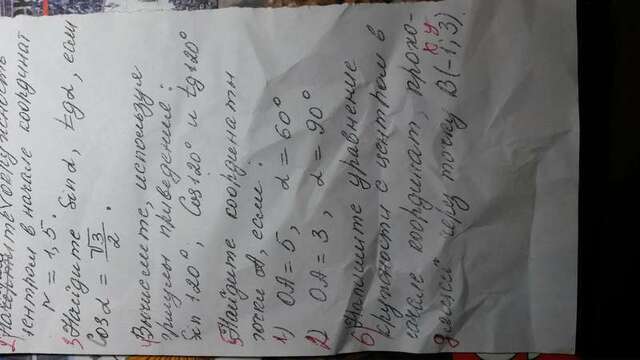 2) Начертите окружность
центром в начале координат
r = 1,5.
3. Найдите sin α, tg α, если
cos α = √3/2.
4) Вычислите, используя
формулы приведения:
sin 120°; cos 120° и tg 120°
5. Найдите координаты
точки А, если:
1) OA = 5, α = 60°
2) OA = 3, α = 90°
6) Напишите уравнение
окружности с центром в
начале координат, прохо-
дящей через точку B(-1; 3)
x y